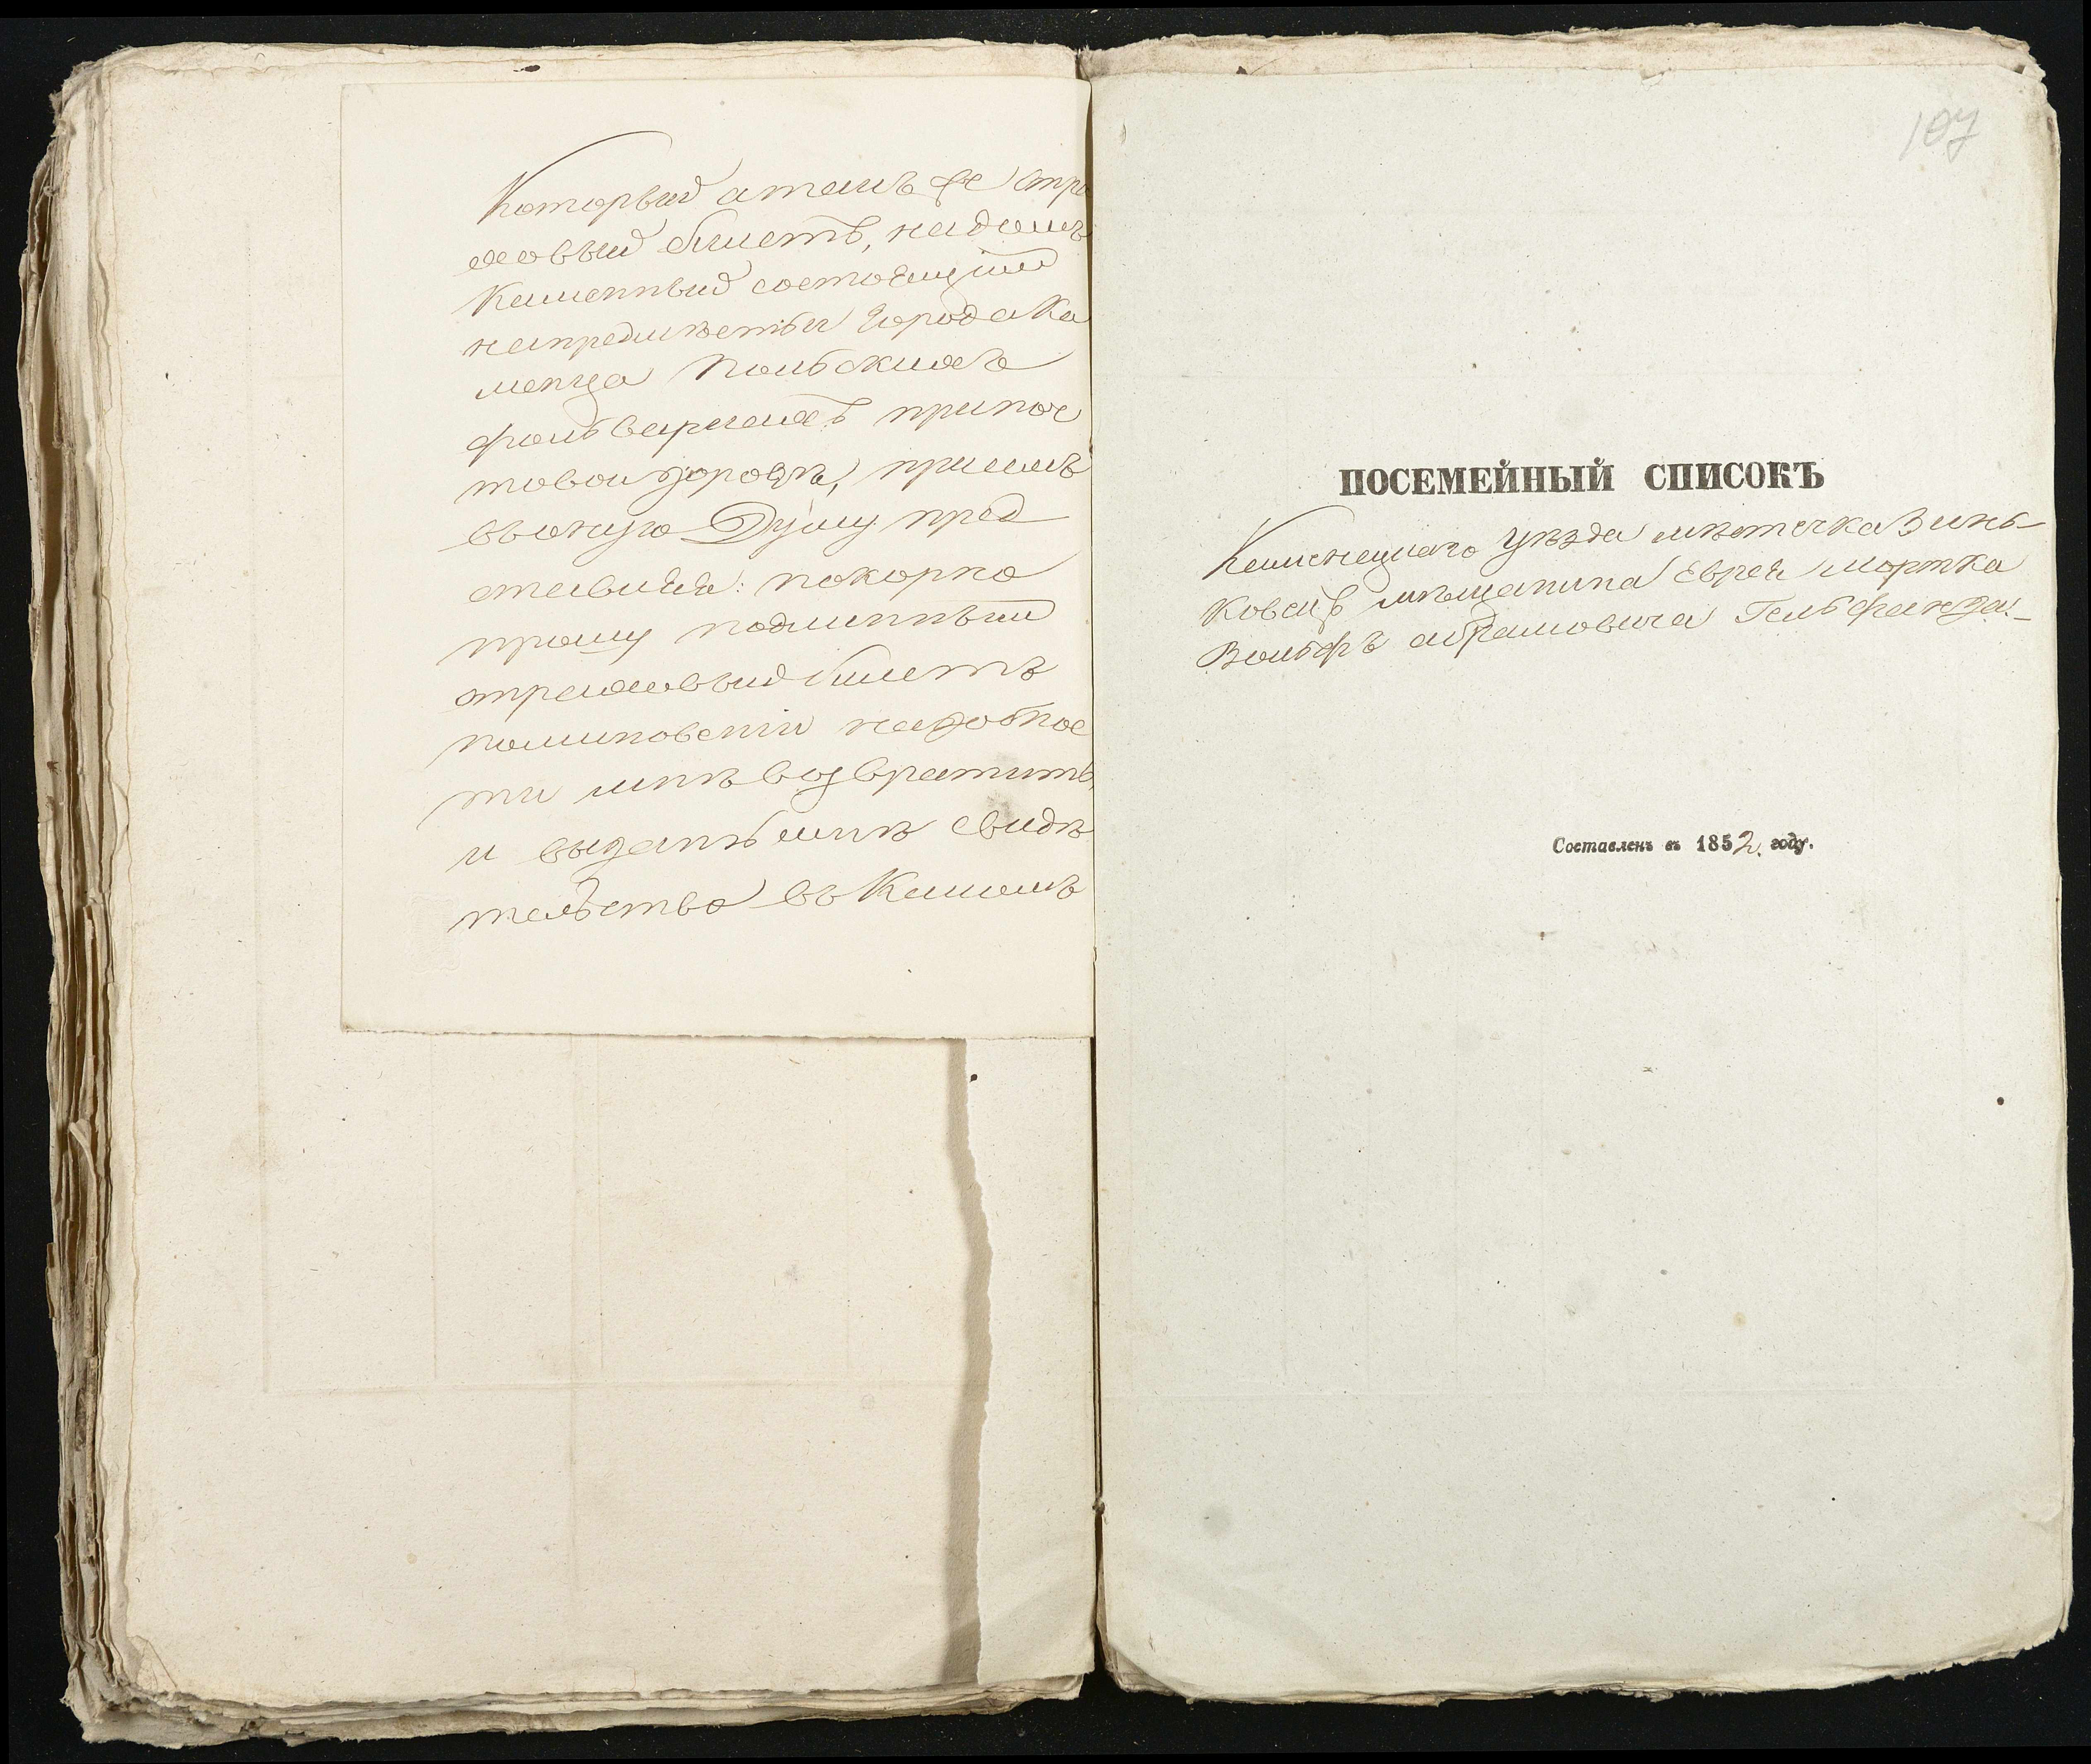 Который атакъ же стра
ховый билетъ, надомъ
Каменный состоящій
напредмѣстьи города Ка
менца Польскихъ
фольваркахъ припоч
товой дорогѣ, присемъ
въоную Думу пред
ставляя: покорно
прошу подлинный
страховый билетъ
поминованіи надобнос
ти мнѣ возвратить,
и выдать мнѣ свидѣ
тельство въ Какомъ
107
ПОСЕМЕЙНЫЙ СПИСОКЪ
Каменецкаго уѣзда мѣстечка Зинь-
ковецъ мѣщанина Еврея Мортка
Вольфъ Абрамовича Гельфанда.
Составленъ въ 1852. году.